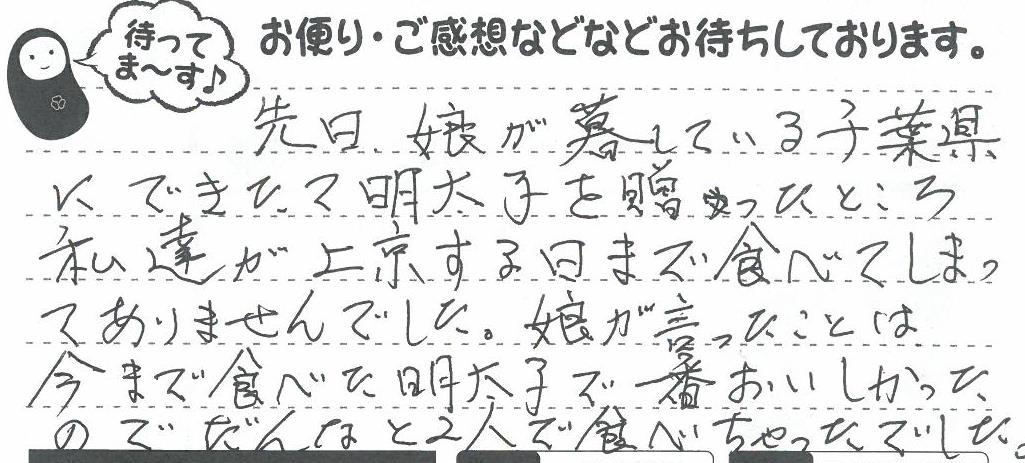 待って
ま～す♪
お便り・ご感想などなどお待ちしております。
先日、娘が暮している千葉県
にできたて明太子を贈ったところ
私達が上京する日まで食べてしまっ
てありませんでした。娘が言ったことは
今まで食べた明太子で一番おいしかった
のでだんなと2人で食べちゃったでした。